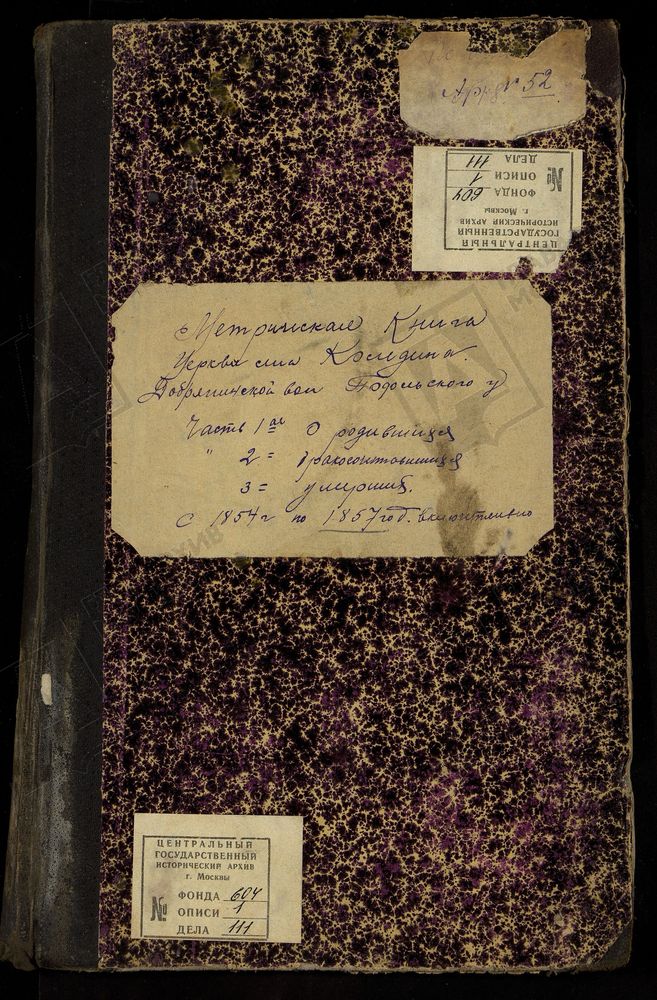 Арх № 52
ЦЕНТРАЛЬНЫЙ
ГОСУДАРСТВЕННЫЙ
ИСТОРИЧЕСКИЙ АРХИВ
г. Москвы
№ ФОНДА 604
ОПИСИ 1
ДЕЛА 111
Метрическая Книга
Церкви села Коледина.
Добрятинской вол Подольского у
Часть 1ая О родившихся
" 2 = бракосочетавшихся
3 = умерших.
С 1854 г по 1857 год. включительно
ЦЕНТРАЛЬНЫЙ
ГОСУДАРСТВЕННЫЙ
ИСТОРИЧЕСКИЙ АРХИВ
г. Москвы
№ ФОНДА 604
ОПИСИ 1
ДЕЛА 111